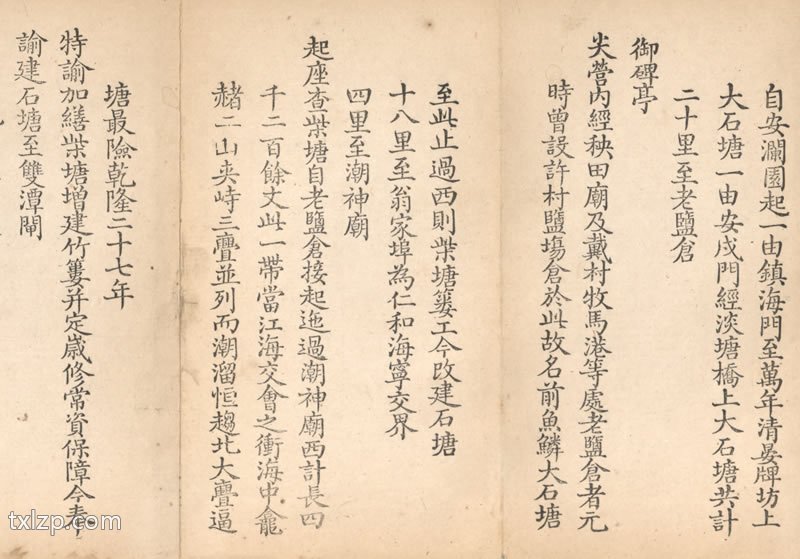 自安瀾園起一由鎮海門至萬年清晏牌坊上
大石塘一由安戍門經淡塘橋上大石塘共計
二十里至老鹽倉
御碑亭
尖營內經秧田廟及戴村牧馬港等處老鹽倉者元
時曾設許村鹽場倉於此故名前魚鱗大石塘
至此止過西則柴塘簍工今改建石塘
十八里至翁家埠為仁和海寧交界
四里至潮神廟
起座查柴塘自老鹽倉接起迤過潮神廟西計長四
千二百餘丈此一帶當江海交會之衝海中龕
赭二山夾峙三亹並列而潮溜恒趨北大亹逼
塘最險乾隆二十七年
特諭加繕柴塘增建竹簍并定歲修常資保障今奉
諭建石塘至雙潭閘
txlzp.com
txlzp.com